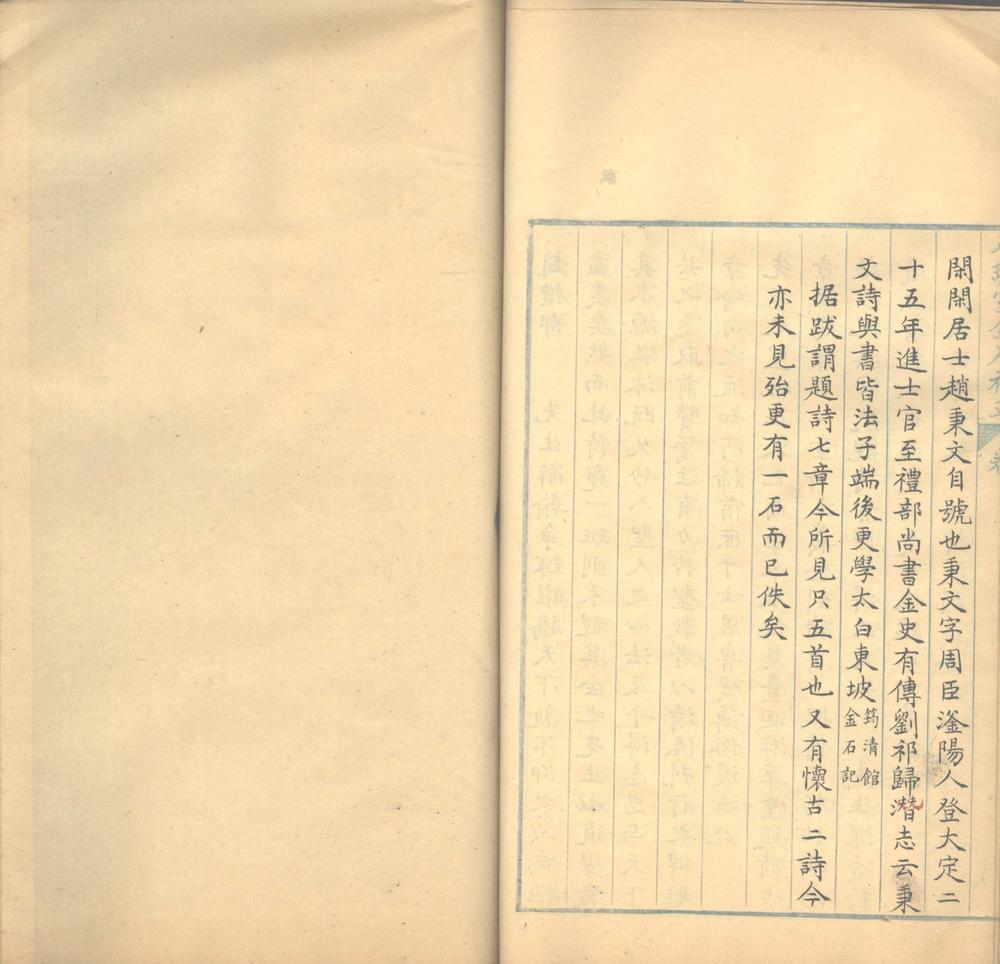 閑閑居士趙秉文自號也秉文字周臣滏陽人登大定二
十五年進士官至禮部尚書金史有傳劉祁歸潛志云秉
文詩與書皆法子端後更學太白東坡筠清館
金石記
据跋謂題詩七章今所見只五首也又有懷古二詩今
亦未見殆更有一石而已佚矣